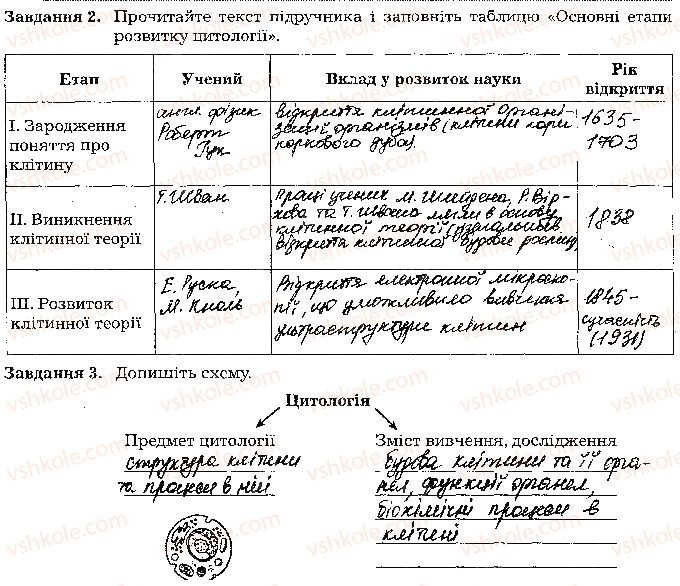 Завдання 2. Прочитайте текст підручника і заповніть таблицю «Основні етапи
розвитку цитології».
Етап
Учений
Вклад у розвиток науки
Рік
відкриття
І. Зародження
поняття про
клітину
англ. фізик
Роберт
Гук
Відкриття клітинної органі-
зації організмів (клітини кори
коркового дуба)
1635-
1703
ІІ. Виникнення
клітинної теорії
Т. Шван
Праці учених М. Шлейдена, Р. Вір-
хова та Т. Швана лягли в основу
клітинної теорії (узагальнив
відкриття клітинної будови рослин)
1838
ІІІ. Розвиток
клітинної теорії
Е. Руска,
М. Кноль
Відкриття електронної мікроско-
пії, що уможливило вивчення
ультраструктури клітин
1845-
сучасність
(1931)
Завдання 3. Допишіть схему.
Цитологія
Предмет цитології
структура клітини
та процеси в ній
Зміст вивчення, дослідження
будова клітини та її орга-
нел, функції органел,
біохімічні процеси в
клітині
vshkole.com